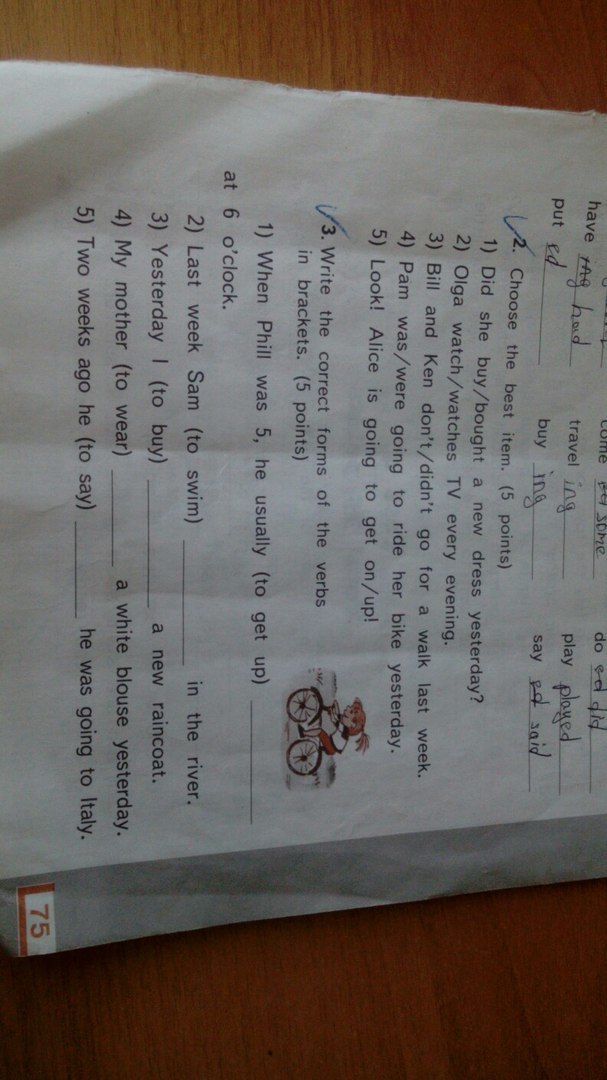 have had
travel ing
play played
put ed
buy ing
say ed said
come some
do ed did
2. Choose the best item. (5 points)
1) Did she buy/bought a new dress yesterday?
2) Olga watch/watches TV every evening.
3) Bill and Ken don't/didn't go for a walk last week.
4) Pam was/were going to ride her bike yesterday.
5) Look! Alice is going to get on/up!
3. Write the correct forms of the verbs
in brackets. (5 points)
1) When Phill was 5, he usually (to get up) ________
at 6 o'clock.
2) Last week Sam (to swim) ________ in the river.
3) Yesterday I (to buy) ________ a new raincoat.
4) My mother (to wear) ________ a white blouse yesterday.
5) Two weeks ago he (to say) ________ he was going to Italy.
75